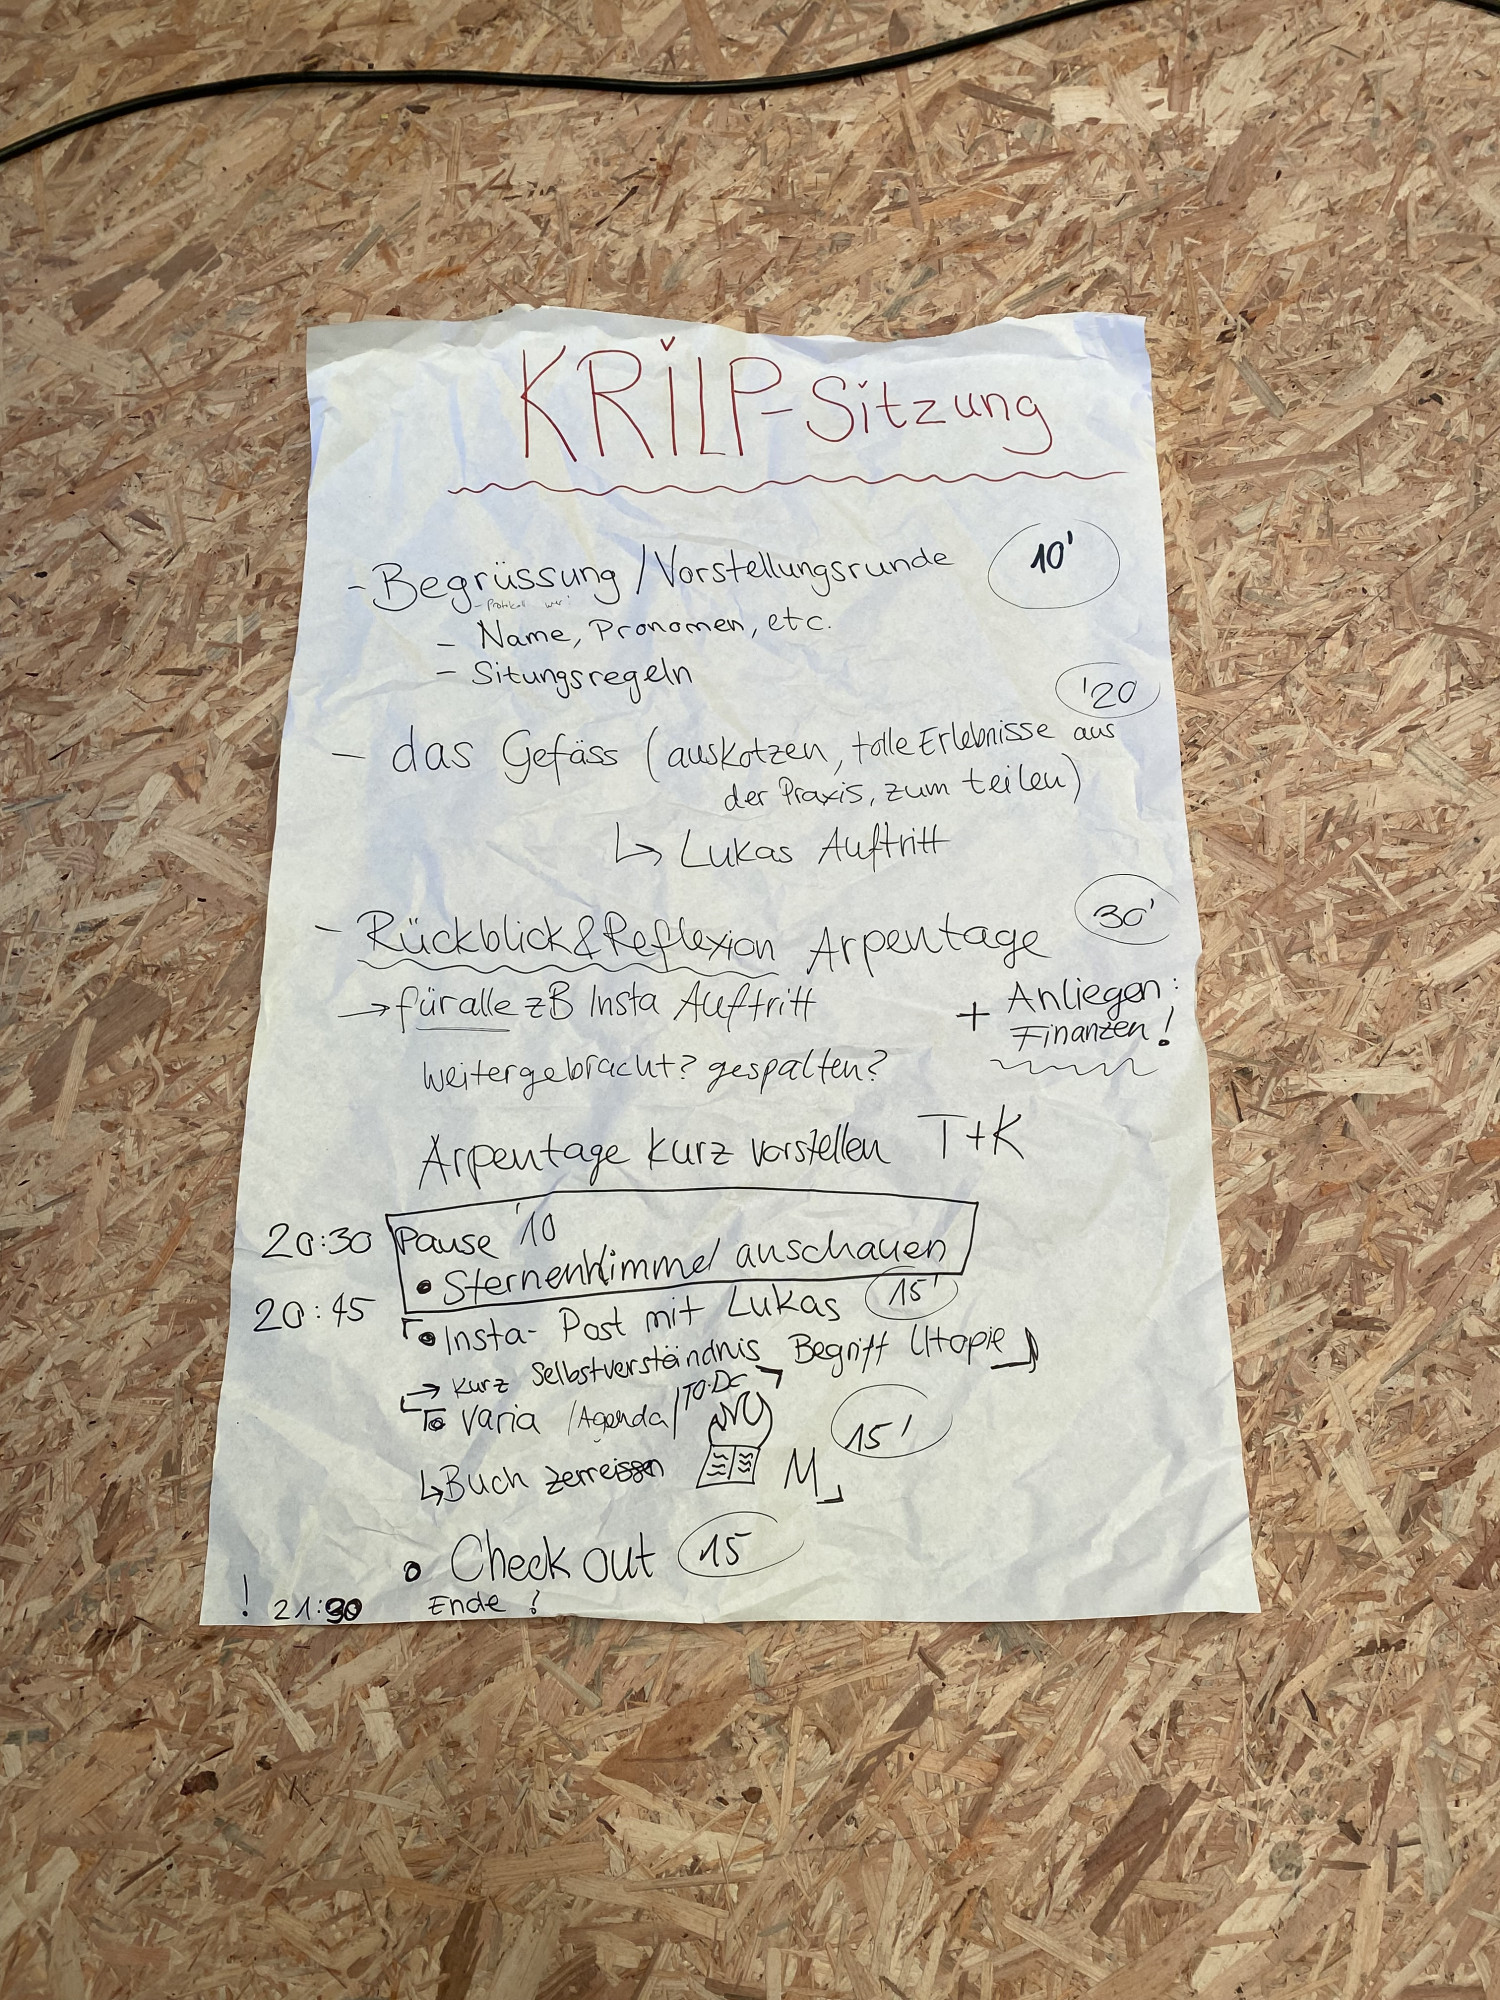 KRILP-Sitzung
- Begrüssung / Vorstellungsrunde 10'
- Protokoll wer?
- Name, Pronomen, etc.
- Situngsregeln
'20
- das Gefäss (auskotzen, tolle Erlebnisse aus
der Praxis, zum teilen)
↳ Lukas Auftritt
- Rückblick & Reflexion Arpentage 30'
→ für alle zB Insta Auftritt
+ Anliegen:
Finanzen!
weitergebracht? gespalten?
Arpentage kurz vorstellen T+K
20:30 Pause '10
• Sternenhimmel anschauen
20:45 • Insta-Post mit Lukas 15'
→ kurz Selbstverständnis Begriff Utopie
• Varia / Agenda / TO-Do
15'
↳ Buch zerreissen M
• Check out 15
! 21:30 Ende !